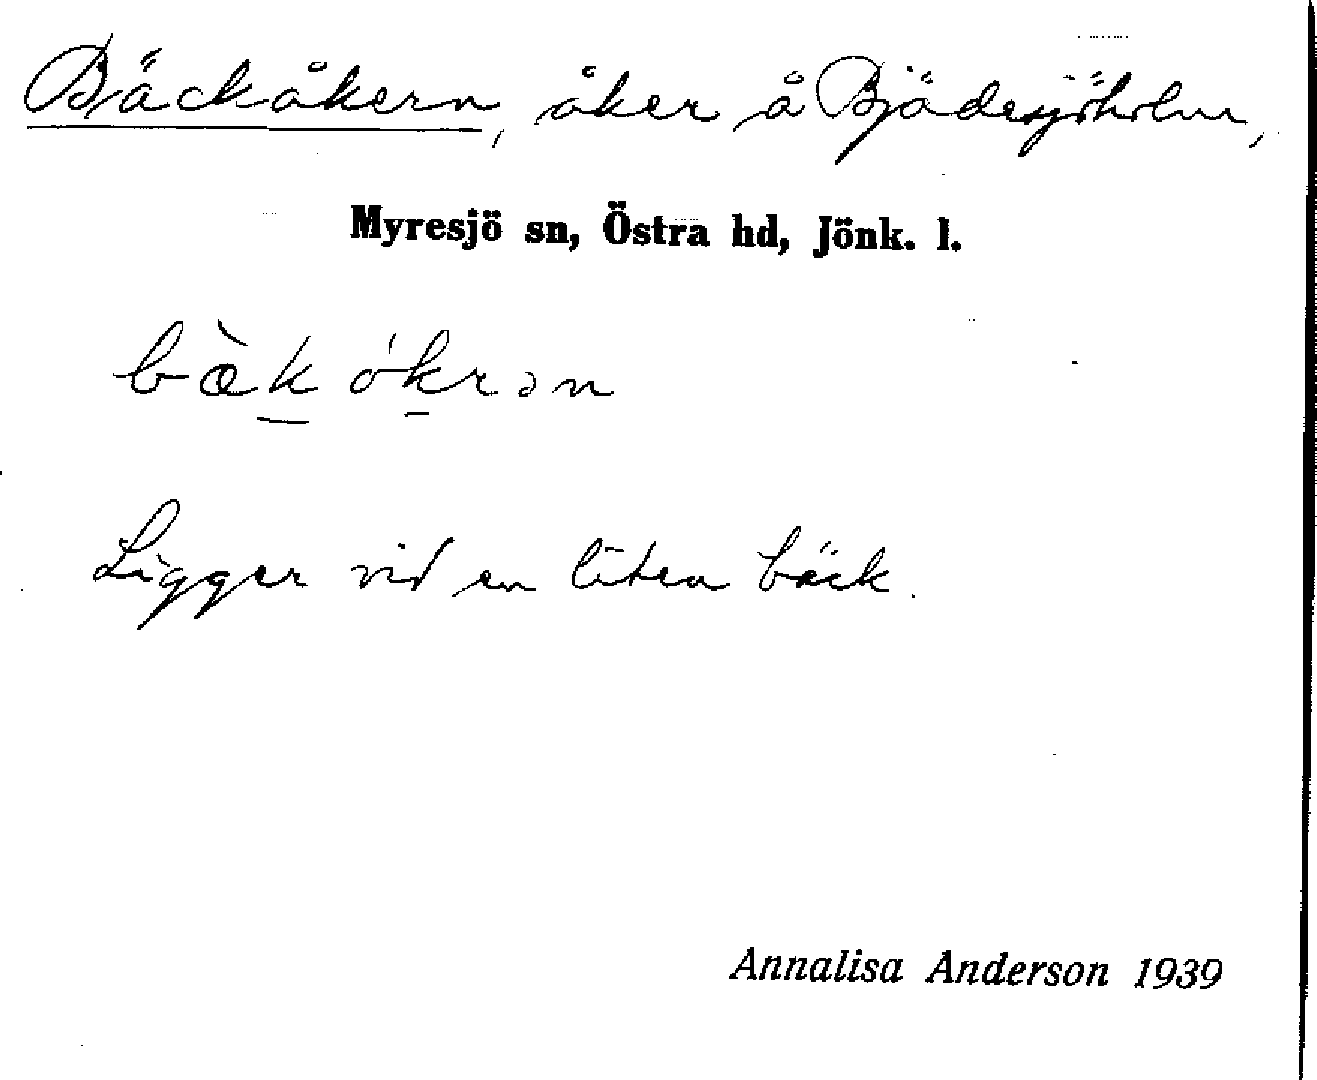 Bäckåkern, åker å Bjädesjöholm,
Myresjö sn, Östra hd, Jönk. l.
bæ̀k ókrən
Ligger vid en liten bäck.
Annalisa Anderson 1939